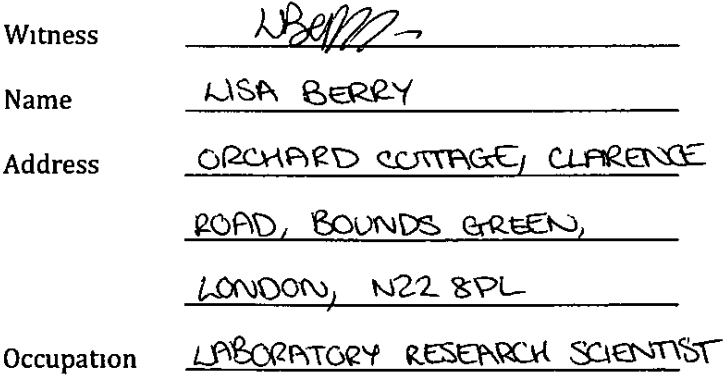 Witness LBerry
Name LISA BERRY
Address ORCHARD COTTAGE, CLARENCE
ROAD, BOUNDS GREEN,
LONDON, N22 8PL
Occupation LABORATORY RESEARCH SCIENTIST